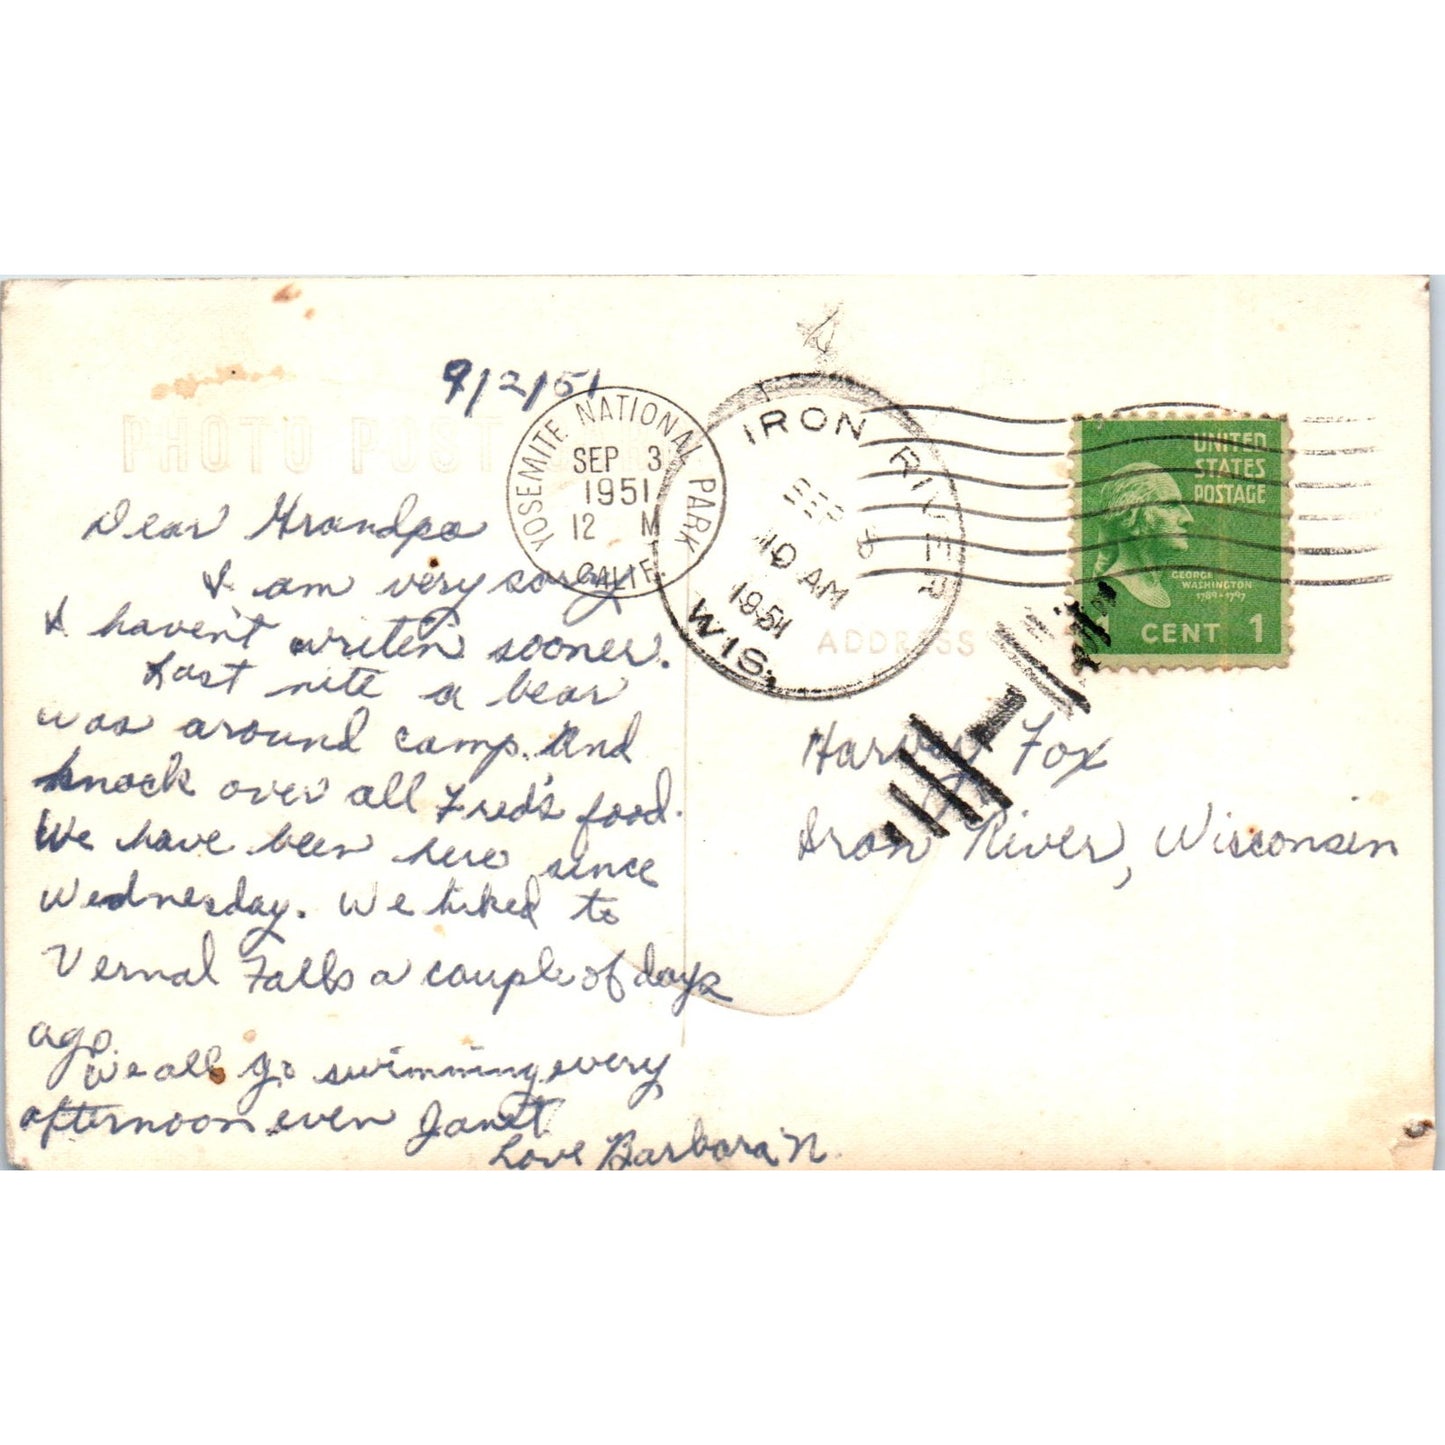 9/2/51
PHOTO POST CARD
Dear Grandpa
I am very sorry
I haven't writen sooner.
Last nite a bear
was around camp. And
knock over all Fred's food.
We have been here since
Wednesday. We hiked to
Vernal Falls a couple of days
ago.
We all go swimming every
afternoon even Janet.
Love Barbara N.
YOSEMITE NATIONAL PARK
SEP 3
1951
12 M
CALIF.
IRON RIVER
SEP
10 AM
1951
WIS.
UNITED
STATES
POSTAGE
GEORGE
WASHINGTON
1789-1797
1 CENT 1
ADDRESS
Harvey Fox
Iron River, Wisconsin